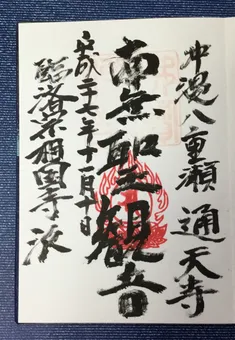 沖縄八重瀬 通天寺
南無聖観音
平成二十七年十一月十日
臨済宗相国寺派